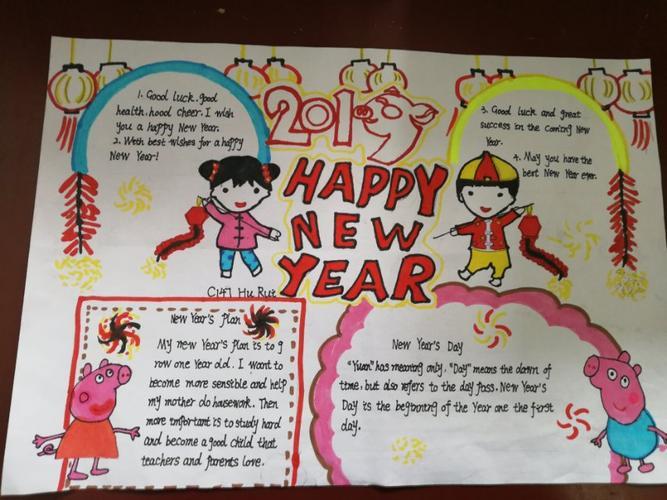 1. Good luck. good
health. hood cheer. I wish
you a happy New Year.
2. With best wishes for a happy
New Year!
2019
HAPPY
NEW
YEAR
3. Good luck and great
success in the coming New
Year.
4. May you have the
best New Year ever.
Hu Rui
New Year's plan
My new Year's plan is to g
row one Year old. I want to
become more sensible and help
my mother do housework. Then
more important is to study hard
and become a good child that
teachers and parents love.
New Year's Day
"Yuan" has meaning only, "Day" means the dawn of
time, but also refers to the day pass. New Year's
Day is the beginning of the Year one the first
day.